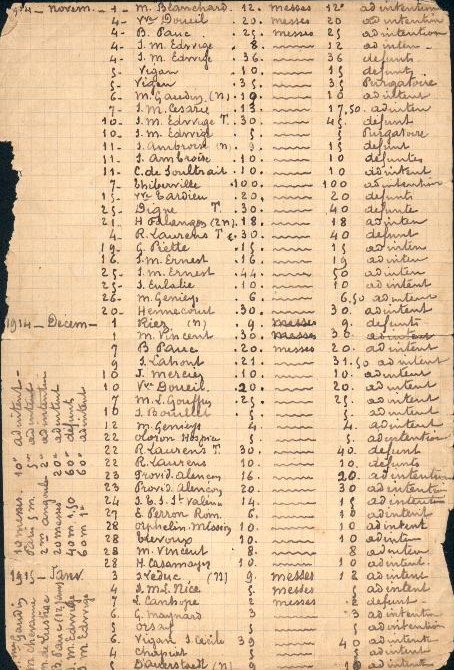 1914 - novem. - 1 - M. Blanchard . 12. messes 12° ad intentin
4 - Vve Doueil . 20. messes 20 ad intention
4 - B. Pauc . 25. messes 25 ad intention
4 - J. M. Edwige 8. 12 ad inten
4 - J. M. Edwige . 36. 36 defunts
5 - Vigan . 10. 15 defunts
5 - Vigan . 35. 35 Purgatoire
6 - M. Gaudin (N) . 10. 10 ad intent
7 - J. M. Cesarie . 13. 17,50 ad inten
10 - J. M. Edwige T. . 30. 45 defunt
10 J. M. Edwige 5. 5 Purgatoire
11 - J. Ambroise (N) 9. 15 defunt
11 J. Ambroise . 10. 10 defuntes
11 - C. de Soultrait . 10. 10 ad intent
7 Thiberville . 100. 100 ad intention
15 - Vve Tardieu . 20. 20 defunts
25 - Digne T. . 30. 40 defunts
21 - (2N) . 18. 18 ad inten
4 - R. Laurens T . 30. 40 defunt
19 - G. Piette . 15. 15 ad inten
16 J. M. Ernest . 16. 19 ad inten
25 - J. M. Ernest . 44. 50 ad inten
25 - J. Eulalie . 10. 10 ad intent
26 - M. Genieys . 6. 6,50 ad inten
20 - Hennecourt . 30. 30 ad intent
1914 - Decem - 1 Riez (N) 9. messes 9. defunts
M. Vincent . 30. messes 30 ad intent
7 B Pauc . 20. messes 20 ad intent
9 J. Lahont . 21. 31.50 ad intent
10 J. Mercier . 10. 10. ad intent
10 Vve Doueil . 20. 20. ad intent
7 M. L. Gouffy . 25. 25. ad intent
10 J. 5. 5 ad intent
12 M. Genieys 4. 4. ad intent
22 Oloron Hospice 5. 5. ad intention
22 R. Laurens T. 30. 40. defunt
22 R. Laurens 10. 10. defunts
23 Provid. Alençon 16. 20. ad intention
23 Provid. Alençon 20. 30 ad intention
24 14. 15 ad intention
27 E Perron Rom. 6. 8 ad intent
28 Orphelin. Mission 10. 10 ad intent
28 10. 10 ad inten
28 M. Vincent 8. 8 ad inten
28 H. Casamayor 10. 10. ad intent
1915 - Janv. 3 J. Leduc (N) 9. messes 12 ad intent
4 J. M. L. Nice 5. messes 5 ad intent
7 L. Canhope 2. messes 2. defunt
6 G. Maynard 3 3 ad intention
5. 5 ad intention
6 Vigan J. Cecile 39 40 ad intention
4 Chapiot 5 5 ad intention
10 messes 10° ad intent
5 m. 5° ad intent
20 messes 20° ad intent
40 m. 1,50 60° defunts
60 m 1° 60° ad intent